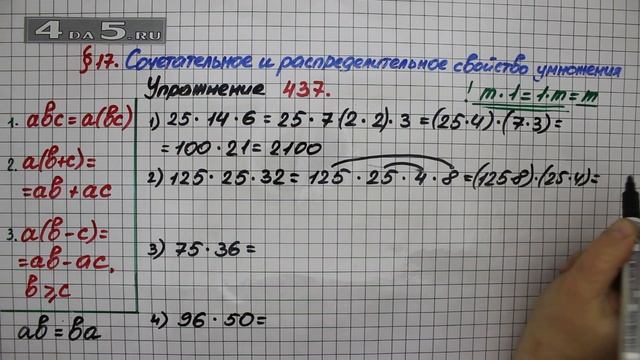 4DA5.RU
§17. Сочетательное и распределительное свойство умножения
Упражнение 437.
! m·1=1·m=m
1. abc=a(bc)
2. a(b+c)=
=ab+ac
3. a(b-c)=
=ab-ac,
b⩾c
ab=ba
1) 25·14·6=25·7(2·2)·3=(25·4)·(7·3)=
=100·21=2100
2) 125·25·32=125·25·4·8=(125·8)·(25·4)=
3) 75·36=
4) 96·50=